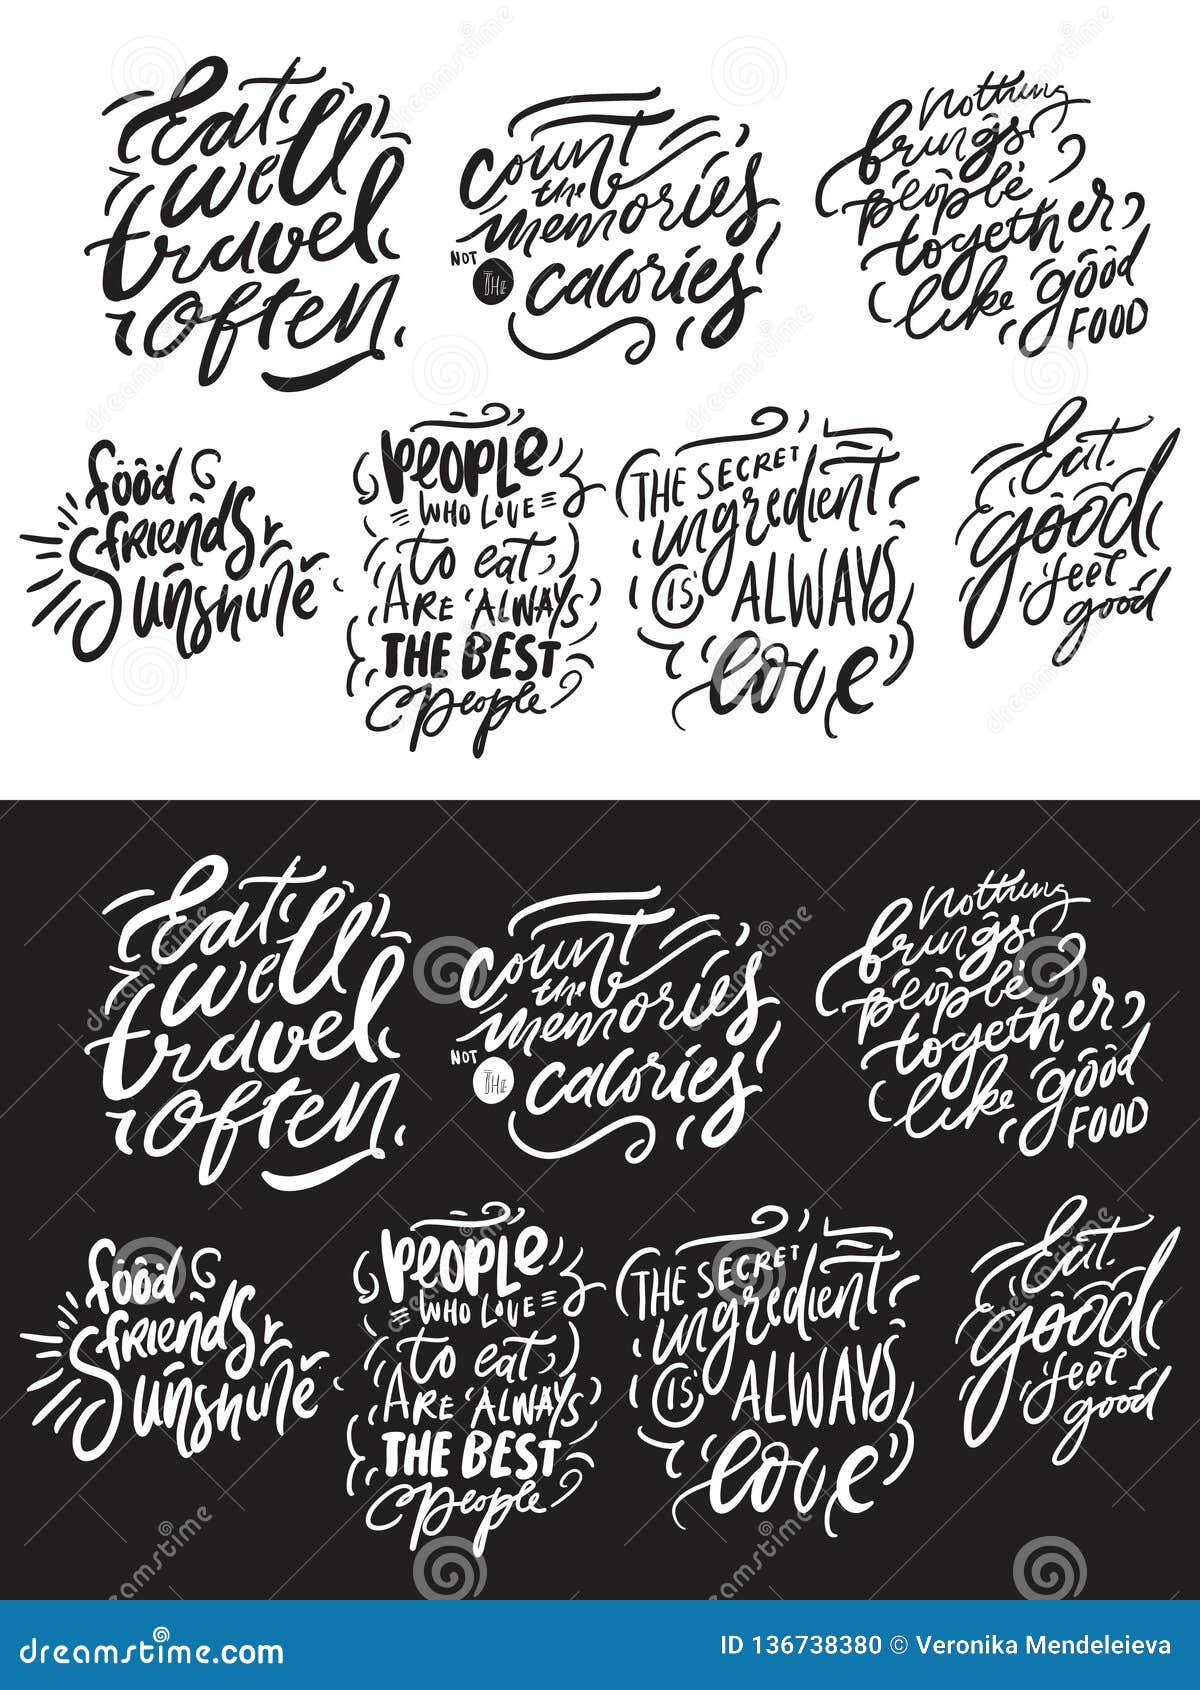 Eat
well
travel
often
count
the
memories
NOT
THE
calories
nothing
brings
people
together
like good
FOOD
food
friends
Sunshine
PEOPLE
WHO LOVE
to eat
ARE ALWAYS
THE BEST
people
THE SECRET
ingredient
IS ALWAYS
love
Eat
good
feel
good
Eat
well
travel
often
count
the
memories
NOT
THE
calories
nothing
brings
people
together
like good
FOOD
food
friends
Sunshine
PEOPLE
WHO LOVE
to eat
ARE ALWAYS
THE BEST
people
THE SECRET
ingredient
IS ALWAYS
love
Eat
good
feel
good
dreamstime
dreamstime.com
ID 136738380 © Veronika Mendeleieva